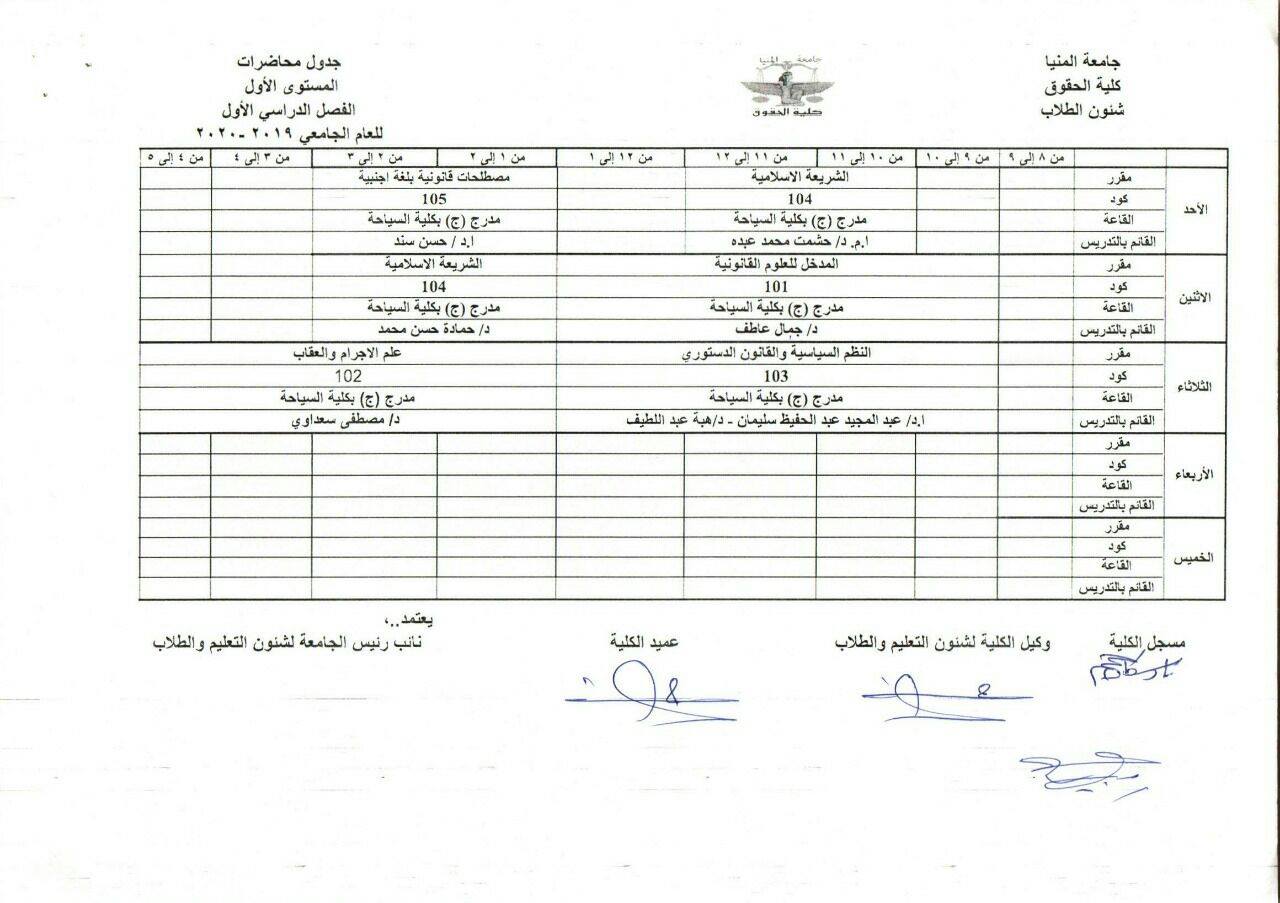 جامعة المنيا
كلية الحقوق
شئون الطلاب
جامعة المنيا
كلية الحقوق
جدول محاضرات
المستوى الأول
الفصل الدراسي الأول
للعام الجامعي ٢٠١٩ -٢٠٢٠
من ٨ إلى ٩ من ٩ إلى ١٠ من ١٠ إلى ١١ من ١١ إلى ١٢ من ١٢ إلى ١ من ١ إلى ٢ من ٢ إلى ٣ من ٣ إلى ٤ من ٤ إلى ٥
الأحد
مقرر الشريعة الاسلامية مصطلحات قانونية بلغة اجنبية
كود 104 105
القاعة مدرج (ج) بكلية السياحة مدرج (ج) بكلية السياحة
القائم بالتدريس ا.م. د/ حشمت محمد عبده ا.د / حسن سند
الاثنين
مقرر المدخل للعلوم القانونية الشريعة الاسلامية
كود 101 104
القاعة مدرج (ج) بكلية السياحة مدرج (ج) بكلية السياحة
القائم بالتدريس د/ جمال عاطف د/ حمادة حسن محمد
الثلاثاء
مقرر النظم السياسية والقانون الدستوري علم الاجرام والعقاب
كود 103 102
القاعة مدرج (ج) بكلية السياحة مدرج (ج) بكلية السياحة
القائم بالتدريس ا.د/ عبد المجيد عبد الحفيظ سليمان - د/هبة عبد اللطيف د/ مصطفى سعداوي
الأربعاء
مقرر
كود
القاعة
القائم بالتدريس
الخميس
مقرر
كود
القاعة
القائم بالتدريس
يعتمد..،
مسجل الكلية وكيل الكلية لشئون التعليم والطلاب عميد الكلية نائب رئيس الجامعة لشئون التعليم والطلاب